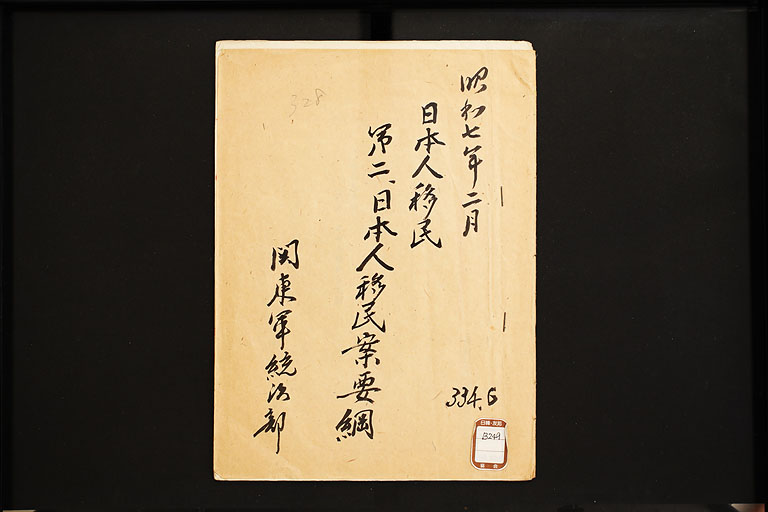 昭和七年二月
日本人移民
第二、日本人移民案要綱
関東軍統治部
328
334.6
日韓・友邦
B249